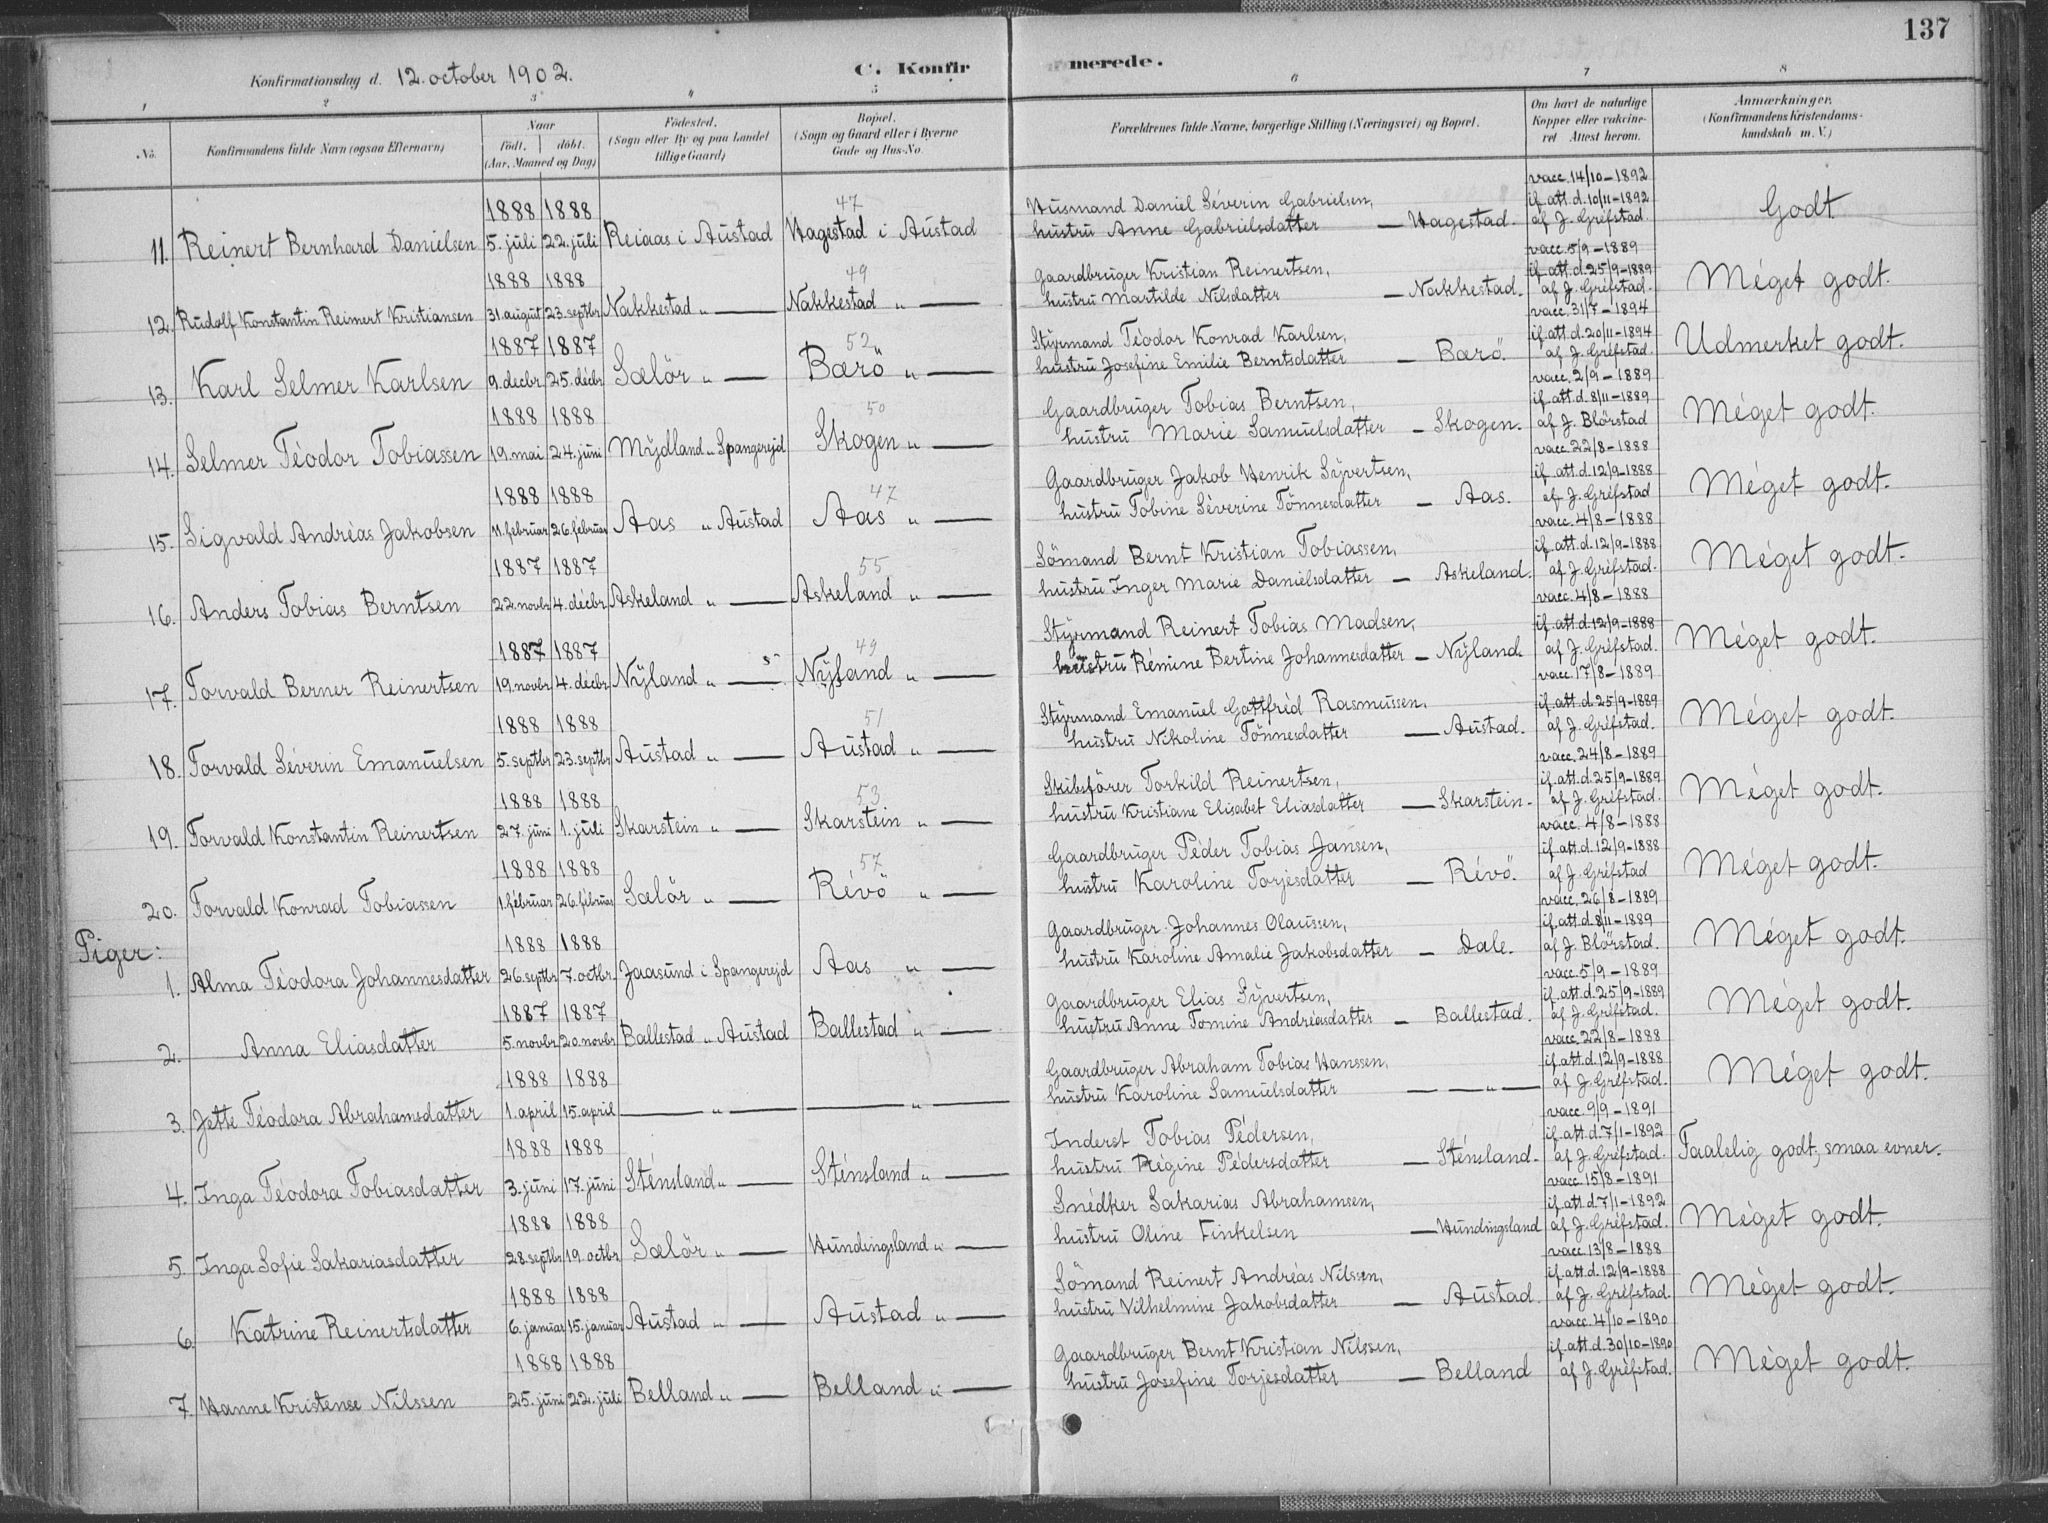 137
Konfirmationsdag d. 12. october 1902.
C. Konfirmerede.
1 2 3 4 5 6 7 8
No.
Konfirmandens fulde Navn (ogsaa Efternavn)
Naar
födt. döbt.
(Aar, Maaned og Dag)
Födested.
(Sogn eller By og paa Landet
tillige Gaard)
Bopæl.
(Sogn og Gaard eller i Byerne
Gade og Hus-No.
Forældrenes fulde Navne, borgerlige Stilling (Næringsvei) og Bopæl.
Om havt de naturlige
Kopper eller vakcine-
ret Attest herom.
Anmærkninger.
(Konfirmandens Kristendoms-
kundskab m. V.)
1888 1888 47 Husmand Daniel Séverin Gabrielsen, vacc. 14/10-1892
if. att. d. 10/11-1892
11. Reinert Bernhard Danielsen 5. juli 22. juli Reiaas i Austad Hagestad i Austad hustru Anne Gabrielsdatter — Hagestad. af J. Gréfstad Godt
1888 1888 49 Gaardbruger Kristian Reinertsen, vacc. 5/9-1889
if. att. d. 25/9-1889
12. Rudolf Konstantin Reinert Kristiansen 31. august 23. septbr. Nakkestad „ — Nakkestad „ — hustru Martilde Nilsdatter — Nakkestad. af J. Gréfstad. Méget godt.
1887 1887 52 Styrmand Téodor Konrad Karlsen, vacc. 31/7-1894
if. att. d. 20/11-1894
13. Karl Selmer Karlsen 9. decbr. 25. décbr. Sælör „ — Bærö „ — hustru Josefine Emilie Berntsdatter — Bærö. af J. Gréfstad. Udmerket godt.
1888 1888 50 Gaardbruger Tobias Berntsen, vacc. 2/9-1889
if. att. d. 8/11-1889
14. Selmer Téodor Tobiassen 19. mai 24. juni Mydland „ Spangerejd Skogen „ — hustru Marie Samuelsdatter — Skogen. af J. Blörstad Méget godt.
1888 1888 47 Gaardbruger Jakob Henrik Syvertsen, vacc. 22/8-1888
if. att. d. 12/9-1888
15. Sigvald Andréas Jakobsen 11. februar 26. februar Aas „ Austad Aas „ — hustru Tobine Séverine Tönnesdatter — Aas. af J. Gréfstad Méget godt.
1887 1887 55 Sömand Bernt Kristian Tobiassen, vacc. 4/8-1888
if. att. d. 12/9-1888
16. Anders Tobias Berntsen 22. novbr. 4. décbr. Askeland „ — Askeland „ — hustru Inger Marie Danielsdatter — Askeland. af J. Gréfstad. Méget godt.
1887 1887 49 Styrmand Reinert Tobias Madsen, vacc. 4/8-1888
if. att. d. 12/9-1888
17. Torvald Berner Reinertsen 19. novbr. 4. décbr. Nyland „ — Nyland „ — hustru Rémine Bertine Johannesdatter — Nyland. af J. Gréfstad. Méget godt.
1888 1888 51 Styrmand Emanuel Gottfréd Rasmussen, vacc. 17/8-1889
if. att. d. 25/9-1889
18. Torvald Séverin Emanuelsen 5. septbr. 23. septbr. Austad „ — Austad „ — hustru Nikoline Tönnesdatter — Austad. af J. Gréfstad. Méget godt.
1888 1888 53 Skibsförer Torkild Reinertsen, vacc. 24/8-1889
if. att. d. 25/9-1889
19. Torvald Konstantin Reinertsen 27. juni 1. juli Skarstein „ — Skarstein „ — hustru Kristiane Elisabet Eliasdatter — Skarstein. af J. Gréfstad. Méget godt.
1888 1888 57 Gaardbruger Péder Tobias Jansen, vacc. 4/8-1888
if. att. d. 12/9-1888
20. Torvald Konrad Tobiassen 1. februar 26. februar Sælör „ — Révö „ — hustru Karoline Torjesdatter — Révö. af J. Gréfstad Méget godt.
Piger:
1888 1888 Gaardbruger Johannes Olaussen, vacc. 26/8-1889
if. att. d. 8/11-1889
1. Alma Téodora Johannesdatter 26. septbr. 7. octbr. Jaasund i Spangerejd Aas „ — hustru Karoline Amalie Jakobsdatter — Dale. af J. Blörstad. Méget godt.
1887 1887 Gaardbruger Elias Syvertsen, vacc. 5/9-1889
if. att. d. 25/9-1889
2. Anna Eliasdatter 5. novbr. 20. novbr. Ballestad „ Austad Ballestad „ — hustru Anne Tomine Andréasdatter — Ballestad. af J. Gréfstad. Méget godt.
1888 1888 Gaardbruger Abraham Tobias Hanssen, vacc. 22/8-1888
if. att. d. 12/9-1888
3. Jette Téodora Abrahamsdatter 1. april 15. april — „ — — „ — hustru Karoline Samuelsdatter — — „ — af J. Gréfstad. Méget godt.
1888 1888 Inderst Tobias Pédersen, vacc. 9/9-1891
if. att. d. 7/1-1892
4. Inga Téodora Tobiasdatter 3. juni 17. juni Sténsland „ — Sténsland „ — hustru Régine Pédersdatter — Sténsland. af J. Gréfstad. Taalelig godt; smaa evner.
1888 1888 Snédker Sakarias Abrahamsen, vacc. 15/8-1891
if. att. d. 7/1-1892
5. Inga Sofie Sakariasdatter 28. septbr. 19. octbr. Sælör „ — Hundingsland „ — hustru Oline Finkelsen — Hundingsland af J. Gréfstad. Méget godt.
1888 1888 Sömand Reinert Andréas Nilssen, vacc. 13/8-1888
if. att. d. 12/9-1888
6. Katrine Reinertsdatter 6. januar 15. januar Austad „ — Austad „ — hustru Vilhelmine Jakobsdatter — Austad. af J. Gréfstad. Méget godt.
1888 1888 Gaardbruger Bernt Kristian Nilssen, vacc. 4/10-1890
if. att. d. 30/10-1890
7. Hanne Kristense Nilssen 25. juni 22. juli Belland „ — Belland „ — hustru Josefine Torjesdatter — Belland af J. Gréfstad. Méget godt.